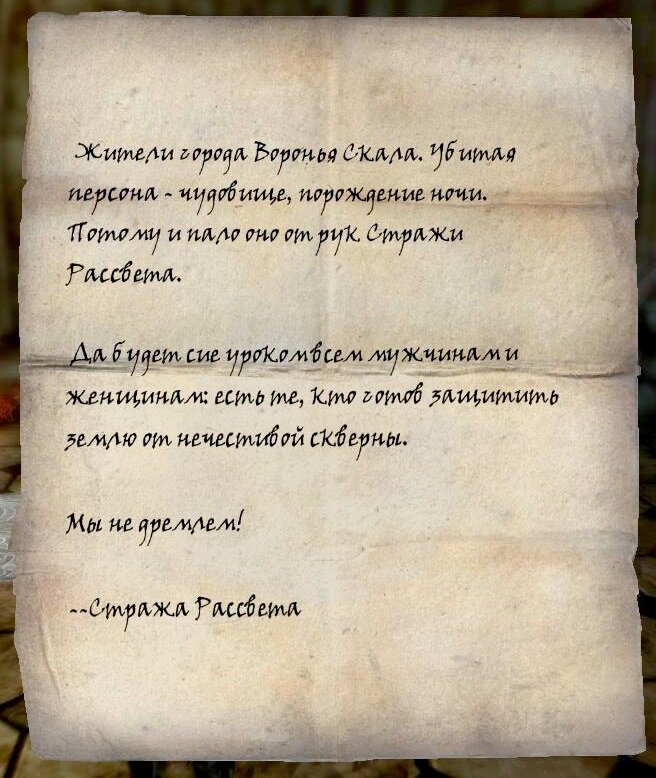 Жители города Воронья Скала. Убитая
персона - чудовище, порождение ночи.
Потому и пало оно от рук Стражи
Рассвета.
Да будет сие уроком всем мужчинам и
женщинам: есть те, кто готов защитить
землю от нечестивой скверны.
Мы не дремлем!
--Стража Рассвета